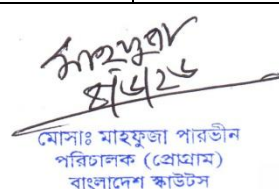 মাহফুজা
মোসাঃ মাহফুজা পারভীন
পরিচালক (প্রোগ্রাম)
বাংলাদেশ স্কাউটস